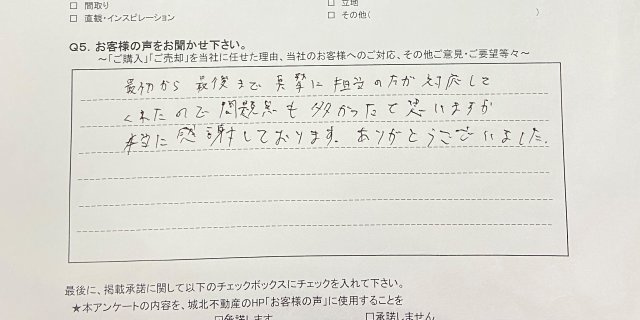 □ 間取り
□ 直観・インスピレーション
□ 立地
□ その他( )
Q5. お客様の声をお聞かせ下さい。
～「ご購入」「ご売却」を当社に任せた理由、当社のお客様へのご対応、その他ご意見・ご要望等々～
最初から最後まで真摯に担当の方が対応して
くれたので問題点も多かったて思いますが
本当に感謝しております。ありがとうございました。
最後に、掲載承諾に関して以下のチェックボックスにチェックを入れて下さい。
★本アンケートの内容を、城北不動産のHP「お客様の声」に使用することを
□承諾します
□承諾しません